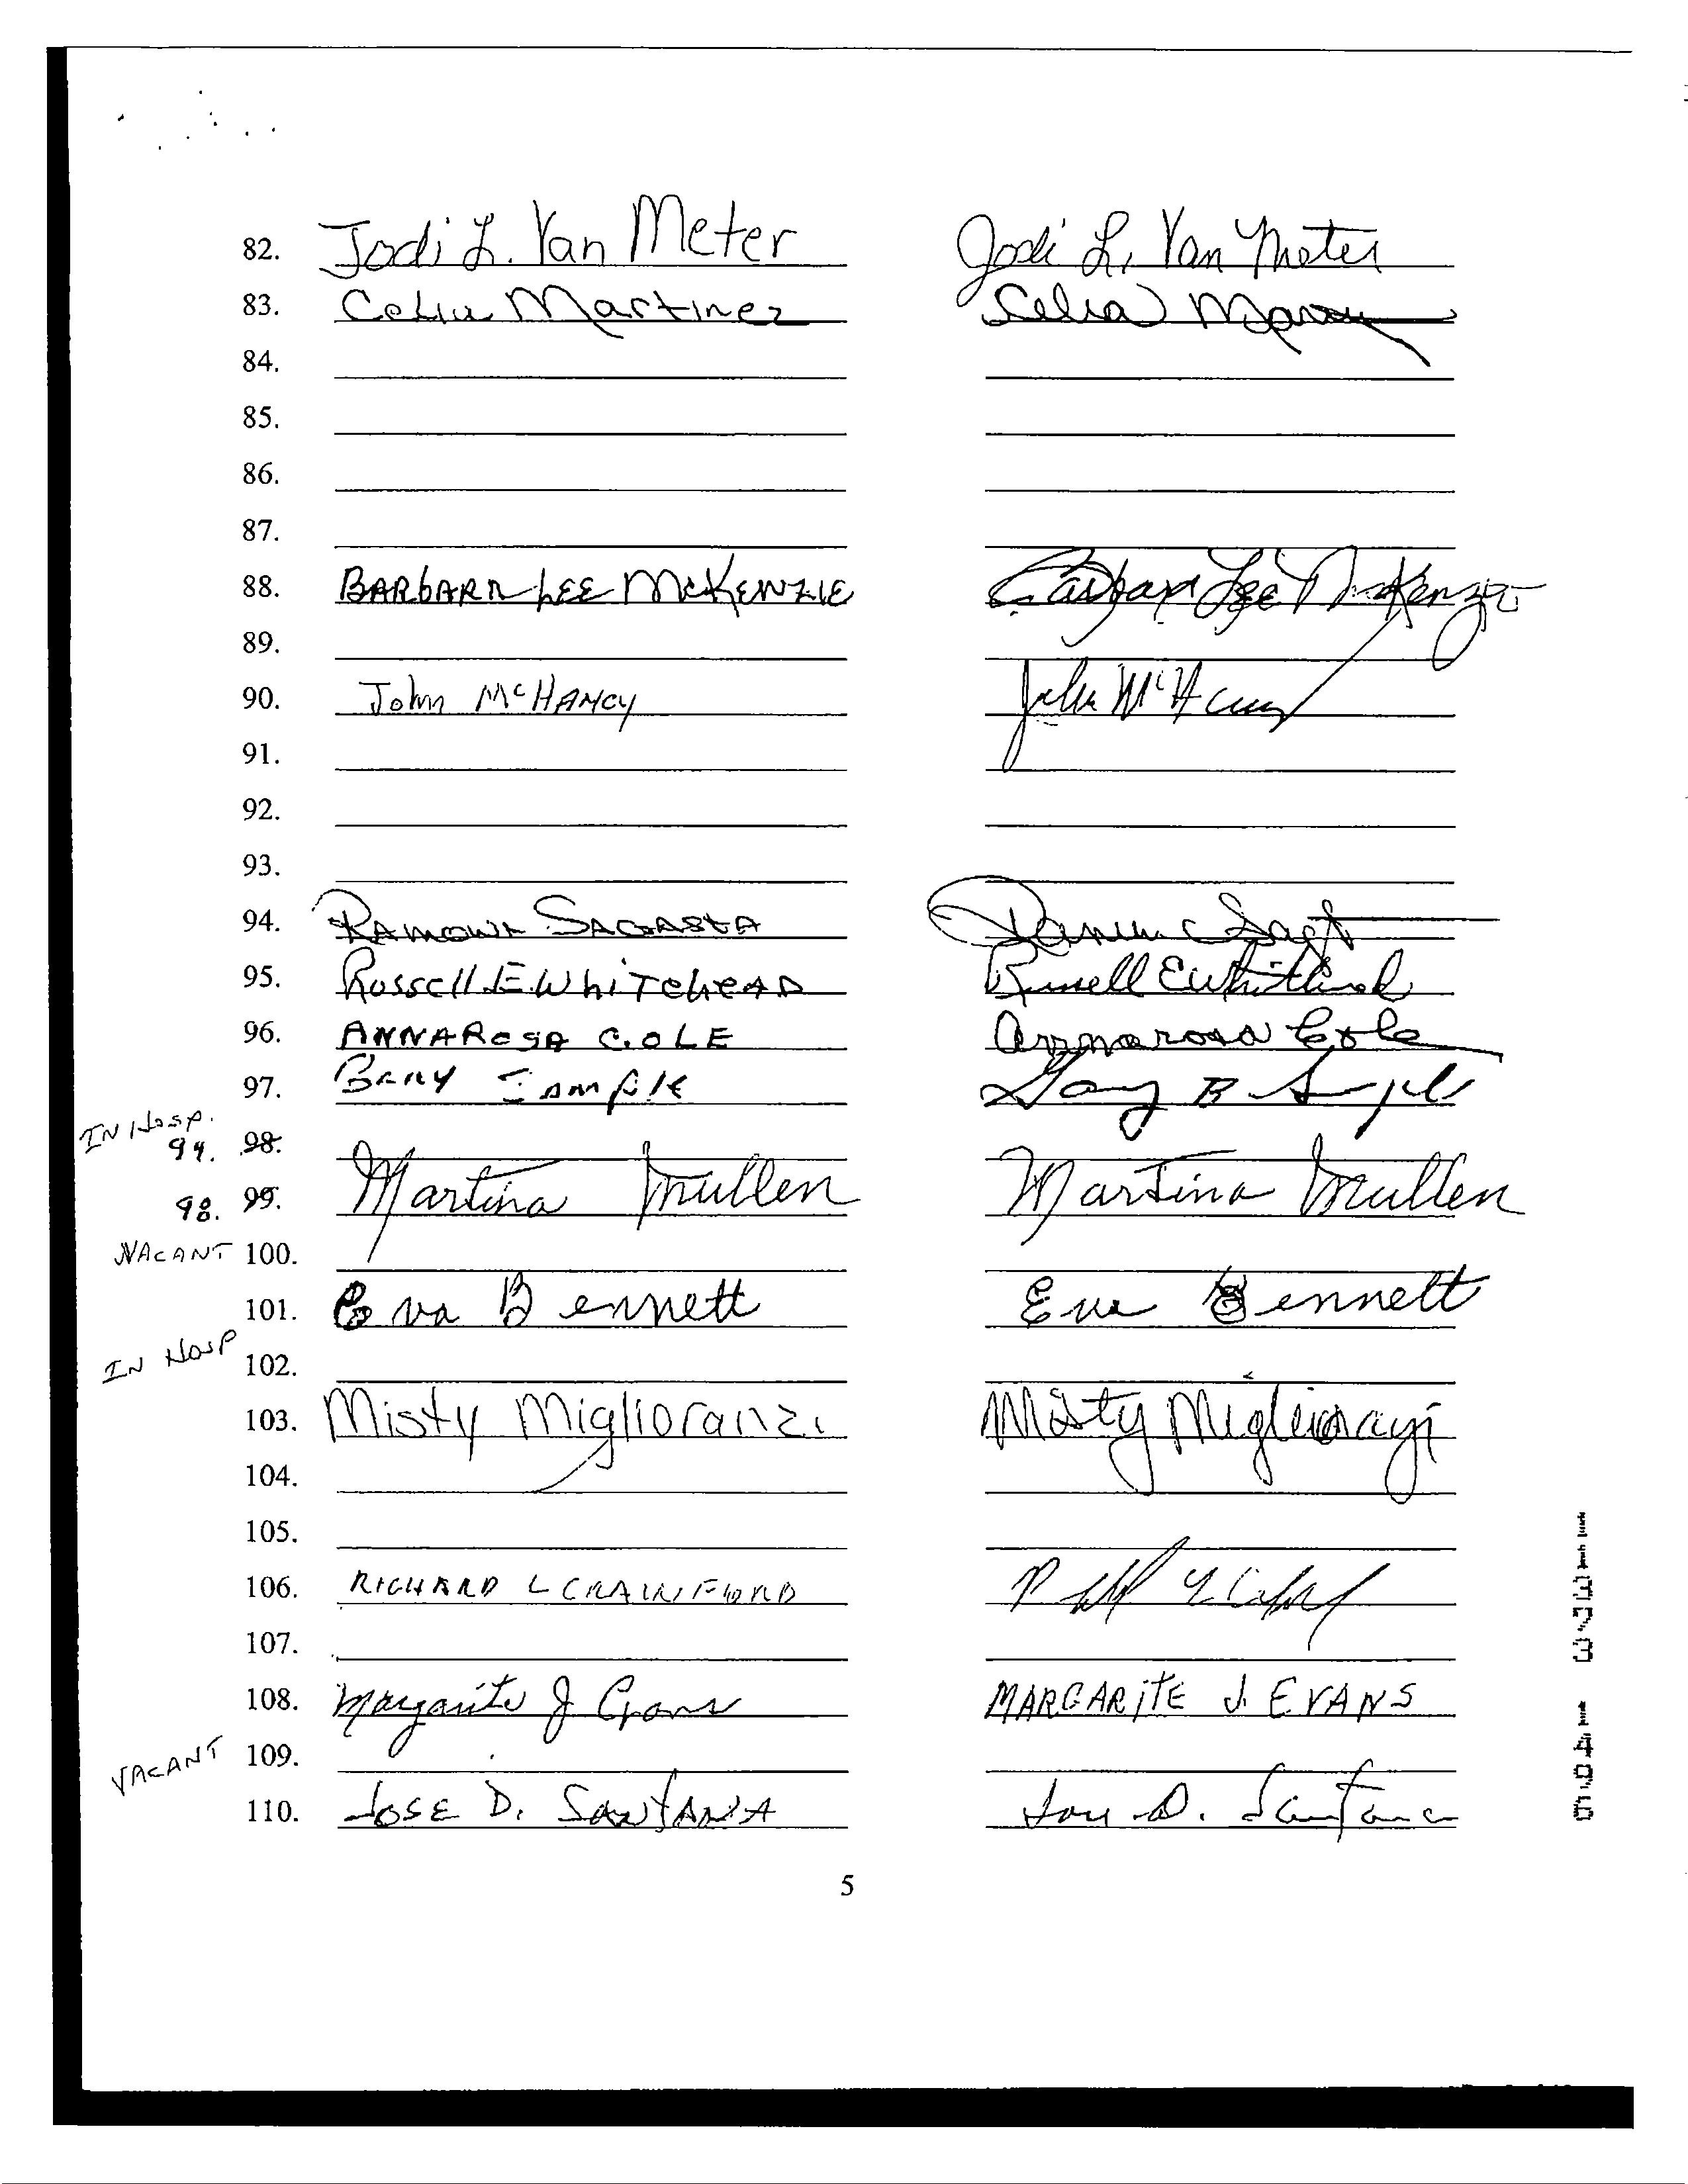 82. Jodi L. Van Meter Jodi L. Van Meter
83. Celia Martinez Celia
84.
85.
86.
87.
88. BARbARA LEE McKENZIE Barbara Lee McKenzie
89.
90. John McHANCY John McHancy
91.
92.
93.
94. RAMONA SAGASTA
95. Russell E. WhiTeheAD Russell E Whitehead
96. ANNAROSA C. OLE Annarosa Cole
97. SAMPLE Gary B
IN Hosp.
99. 98.
98. 99. Martina Mullen Martina Mullen
VACANT 100.
101. Eva Bennett Eva Bennett
IN HOSP 102.
103. Misty Miglioranzi Misty Miglioranzi
104.
105.
106. RICHARD L CRAWFORD
107.
108. Margarite J Evans MARGARITE J. EVANS
VACANT 109.
110. JOSE D. SANTANA Jose D. Santana
5